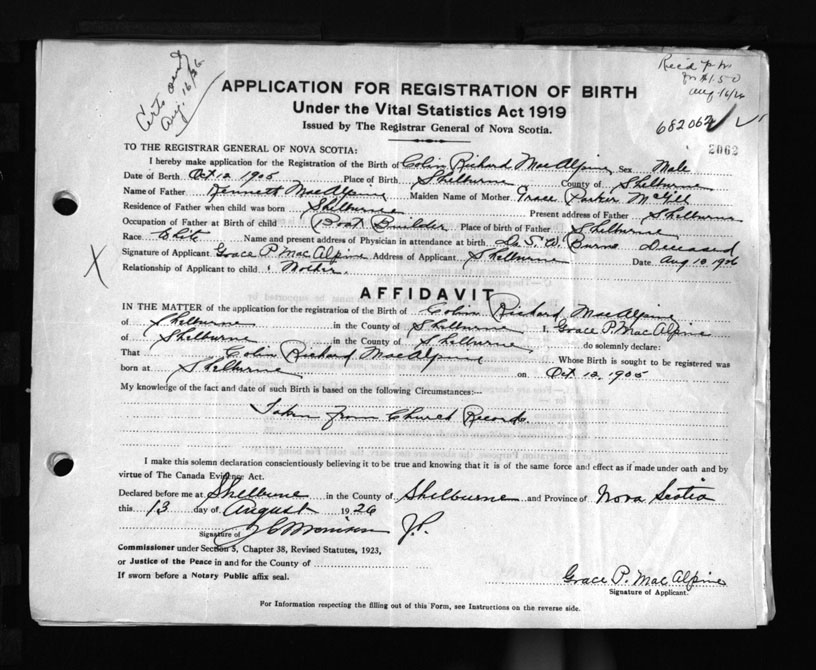 Certs out
Aug. 16/26.
Rec'd p m
$1.50
Aug 16/26
APPLICATION FOR REGISTRATION OF BIRTH
Under the Vital Statistics Act 1919
Issued by The Registrar General of Nova Scotia.
682062
2062
TO THE REGISTRAR GENERAL OF NOVA SCOTIA:
I hereby make application for the Registration of the Birth of Colin Richard MacAlpine Sex Male
Date of Birth Oct 12 1905 Place of Birth Shelburne County of Shelburne
Name of Father Kenneth MacAlpine Maiden Name of Mother Grace Parker McGill
Residence of Father when child was born Shelburne Present address of Father Shelburne
Occupation of Father at Birth of child Boat Builder Place of birth of Father Shelburne
Race White Name and present address of Physician in attendance at birth Dr S. W. Burns Deceased
Signature of Applicant Grace P. MacAlpine Address of Applicant Shelburne Date Aug 10 1926
Relationship of Applicant to child: Mother.
X
AFFIDAVIT
IN THE MATTER of the application for the registration of the Birth of Colin Richard MacAlpine
of Shelburne in the County of Shelburne I, Grace P. MacAlpine
of Shelburne in the County of Shelburne do solemnly declare:
That Colin Richard MacAlpine Whose Birth is sought to be registered was
born at Shelburne on Oct 12, 1905
My knowledge of the fact and date of such Birth is based on the following Circumstances:—
Taken from Church Records.
I make this solemn declaration conscientiously believing it to be true and knowing that it is of the same force and effect as if made under oath and by
virtue of The Canada Evidence Act.
Declared before me at Shelburne in the County of Shelburne and Province of Nova Scotia
this 13 day of August 1926
Signature of Morrison J.P.
Commissioner under Section 5, Chapter 38, Revised Statutes, 1923,
or Justice of the Peace in and for the County of
If sworn before a Notary Public affix seal.
Grace P. MacAlpine
Signature of Applicant.
For Information respecting the filling out of this Form, see Instructions on the reverse side.